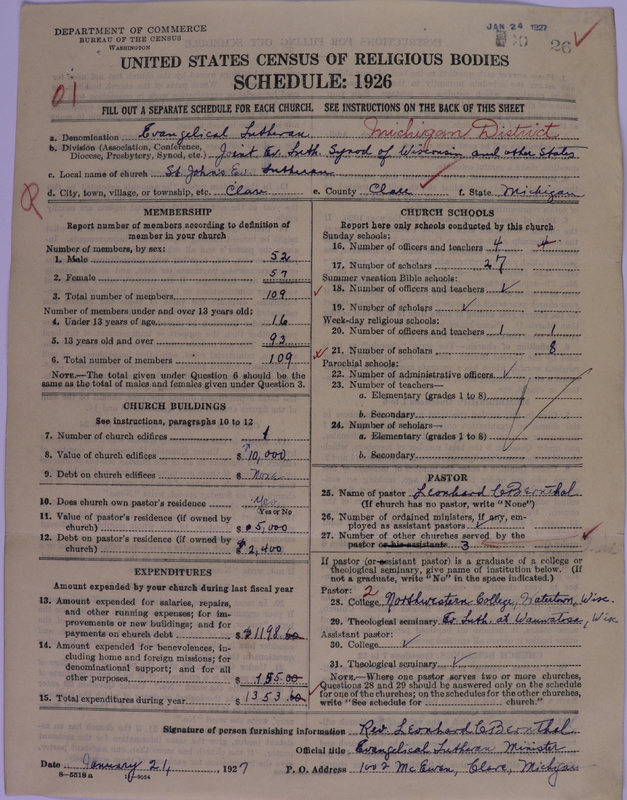 DEPARTMENT OF COMMERCE
BUREAU OF THE CENSUS
WASHINGTON
JAN 24 1927
26
UNITED STATES CENSUS OF RELIGIOUS BODIES
SCHEDULE: 1926
01
FILL OUT A SEPARATE SCHEDULE FOR EACH CHURCH. SEE INSTRUCTIONS ON THE BACK OF THIS SHEET
a. Denomination Evangelical Lutheran Michigan District
b. Division (Association, Conference, Diocese, Presbytery, Synod, etc.) Joint Ev. Luth. Synod of Wisconsin and other States
c. Local name of church St. John's Ev. Lutheran
d. City, town, village, or township, etc. Clare e. County Clare f. State Michigan
MEMBERSHIP
Report number of members according to definition of member in your church
Number of members, by sex:
1. Male 52
2. Female 57
3. Total number of members 109
Number of members under and over 13 years old:
4. Under 13 years of age 16
5. 13 years old and over 93
6. Total number of members 109
NOTE.—The total given under Question 6 should be the same as the total of males and females given under Question 3.
CHURCH BUILDINGS
See instructions, paragraphs 10 to 12
7. Number of church edifices 1
8. Value of church edifices $ 10,000
9. Debt on church edifices $ None
10. Does church own pastor's residence Yes
Yes or No
11. Value of pastor's residence (if owned by church) $ 5,000
12. Debt on pastor's residence (if owned by church) $ 2,400
EXPENDITURES
Amount expended by your church during last fiscal year
13. Amount expended for salaries, repairs, and other running expenses; for improvements or new buildings; and for payments on church debt $ 1198.60
14. Amount expended for benevolences, including home and foreign missions; for denominational support; and for all other purposes $ 155.00
15. Total expenditures during year $ 1353.60
CHURCH SCHOOLS
Report here only schools conducted by this church
Sunday schools:
16. Number of officers and teachers 4 4
17. Number of scholars 27
Summer vacation Bible schools:
18. Number of officers and teachers ✓
19. Number of scholars ✓
Week-day religious schools:
20. Number of officers and teachers 1 1
21. Number of scholars 8
Parochial schools:
22. Number of administrative officers ✓
23. Number of teachers—
a. Elementary (grades 1 to 8)
b. Secondary
24. Number of scholars—
a. Elementary (grades 1 to 8)
b. Secondary
PASTOR
25. Name of pastor Leonhard C Bernthal
(If church has no pastor, write "None")
26. Number of ordained ministers, if any, employed as assistant pastors ✓
27. Number of other churches served by the pastor or his assistants 3
If pastor (or assistant pastor) is a graduate of a college or theological seminary, give name of institution below. (If not a graduate, write "No" in the space indicated.)
Pastor: 2
28. College Northwestern College, Watertown, Wisc.
29. Theological seminary Ev. Luth. at Wauwatosa, Wisc
Assistant pastor:
30. College ✓
31. Theological seminary ✓
NOTE.—Where one pastor serves two or more churches, Questions 28 and 29 should be answered only on the schedule for one of the churches; on the schedules for the other churches, write "See schedule for church."
Signature of person furnishing information Rev. Leonhard C Bernthal
Official title Evangelical Lutheran Minister
Date January 21, 1927 P. O. Address 1002 McEwan, Clare, Michigan
8-5518 a